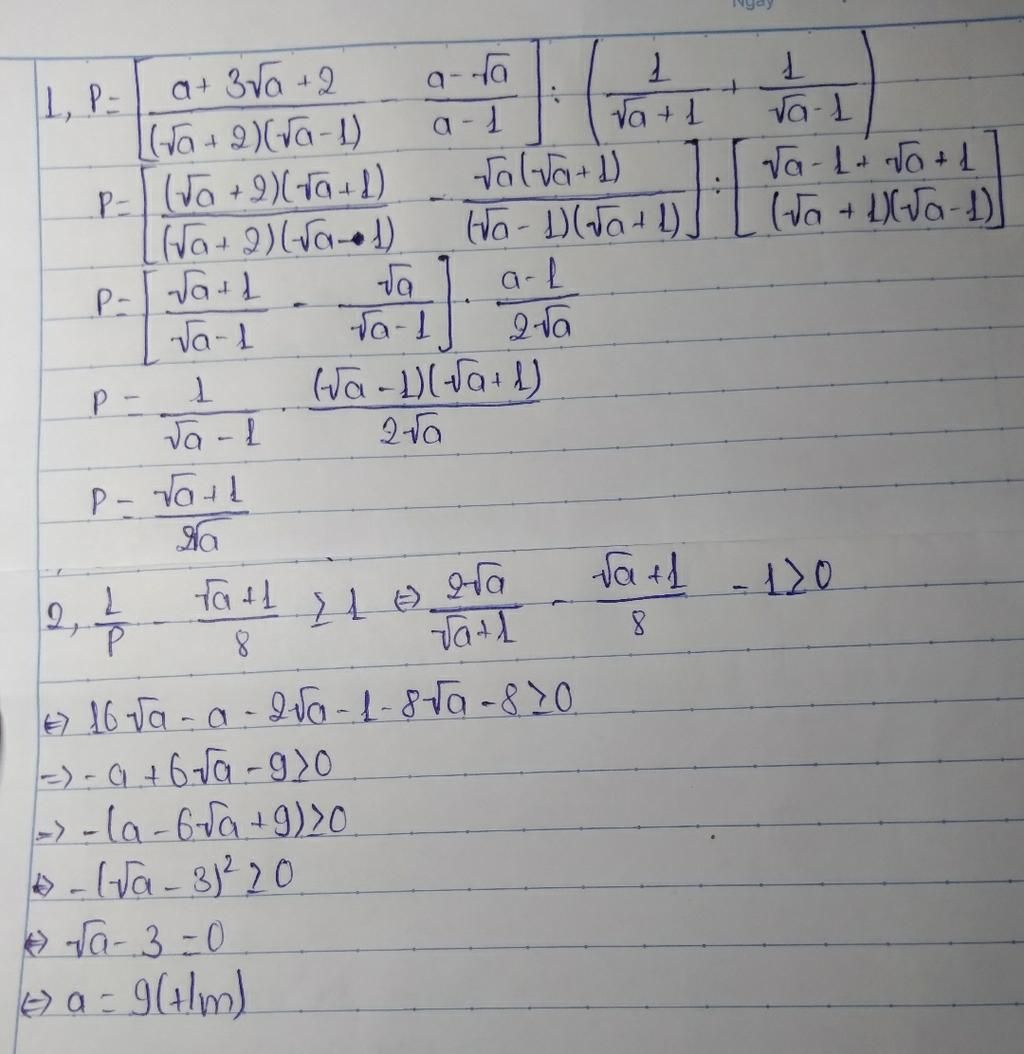 Ngày
1, P = [ (a + 3√a + 2)/((√a + 2)(√a - 1)) - (a - √a)/(a - 1) ] : ( 1/(√a + 1) + 1/(√a - 1) )
P = [ ((√a + 2)(√a + 1))/((√a + 2)(√a - 1)) - (√a(√a + 1))/((√a - 1)(√a + 1)) ] : [ (√a - 1 + √a + 1)/((√a + 1)(√a - 1)) ]
P = [ (√a + 1)/(√a - 1) - √a/(√a - 1) ] . (a - 1)/(2√a)
P = 1/(√a - 1) . ((√a - 1)(√a + 1))/(2√a)
P = (√a + 1)/(2√a)
2, 1/P - (√a + 1)/8 ≥ 1 ⇔ (2√a)/(√a + 1) - (√a + 1)/8 - 1 ≥ 0
⇔ 16√a - a - 2√a - 1 - 8√a - 8 ≥ 0
=> - a + 6√a - 9 ≥ 0
=> -(a - 6√a + 9) ≥ 0
⇔ -(√a - 3)² ≥ 0
⇔ √a - 3 = 0
⇔ a = 9 (t/m)